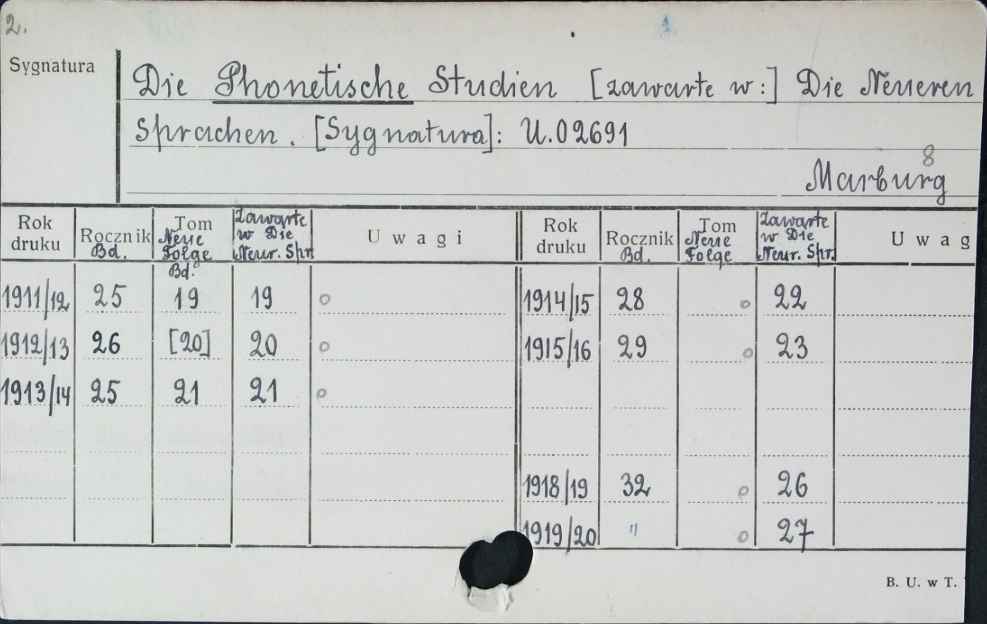 2.
Sygnatura
Die Phonetische Studien [zawarte w:] Die Neueren
Sprachen. [Sygnatura]: U.02691
8
Marburg
Rok druku Rocznik Bd. Tom Neue Folge Bd. Zawarte w Die Neur. Spr. Uwagi Rok druku Rocznik Bd. Tom Neue Folge Zawarte w Die Neur. Spr. Uwag
1911/12 25 19 19 o 1914/15 28 o 22
1912/13 26 [20] 20 o 1915/16 29 o 23
1913/14 25 21 21 o
1918/19 32 o 26
1919/20 " o 27
B. U. w T.